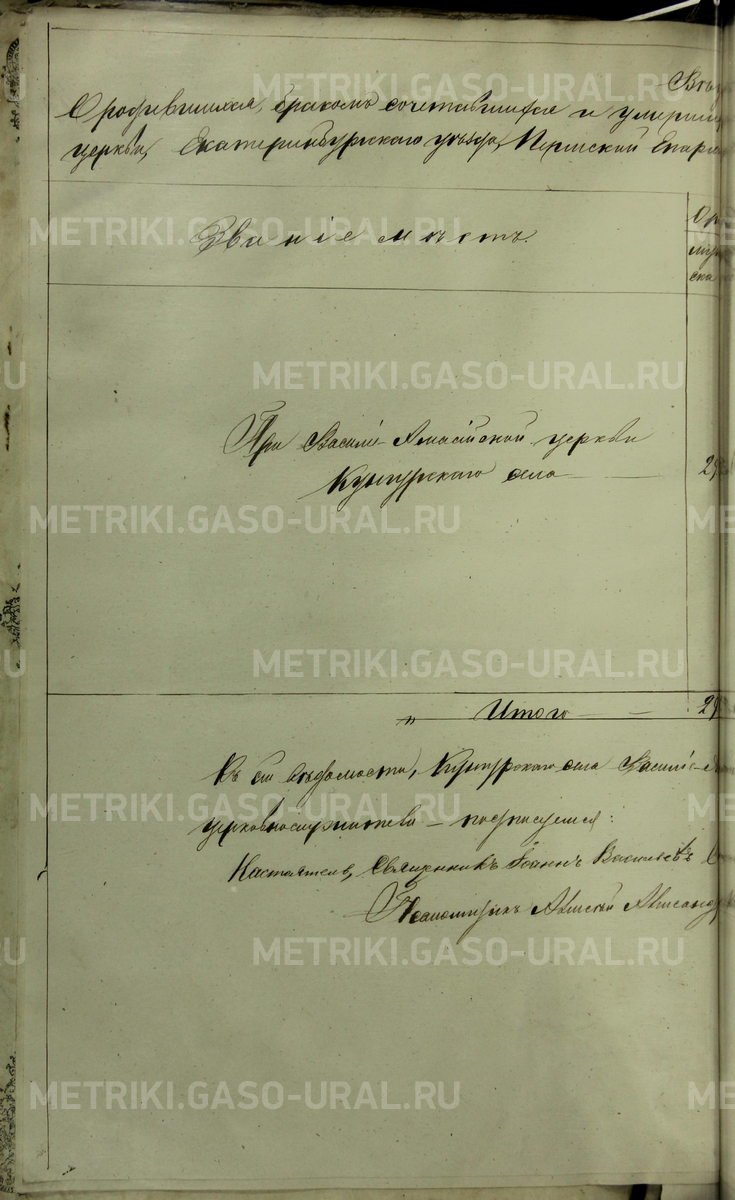 Вѣд
О родившихся, бракомъ сочетавшихся и умерши
церкви, Екатеринбургскаго уѣзда, Пермской Епар
Званіе мѣстъ.
При Василіе-Амасійской церкви
Кунгурскаго села
29
„ Итого 29
Къ сей вѣдомости, Кунгурскаго села Василіе-А
церковнослужители – подписуемся:
Настоятель, Священникъ Іоаннъ Васильевъ
Псаломщикъ Алексѣй Александ
METRIKI.GASO-URAL.RU